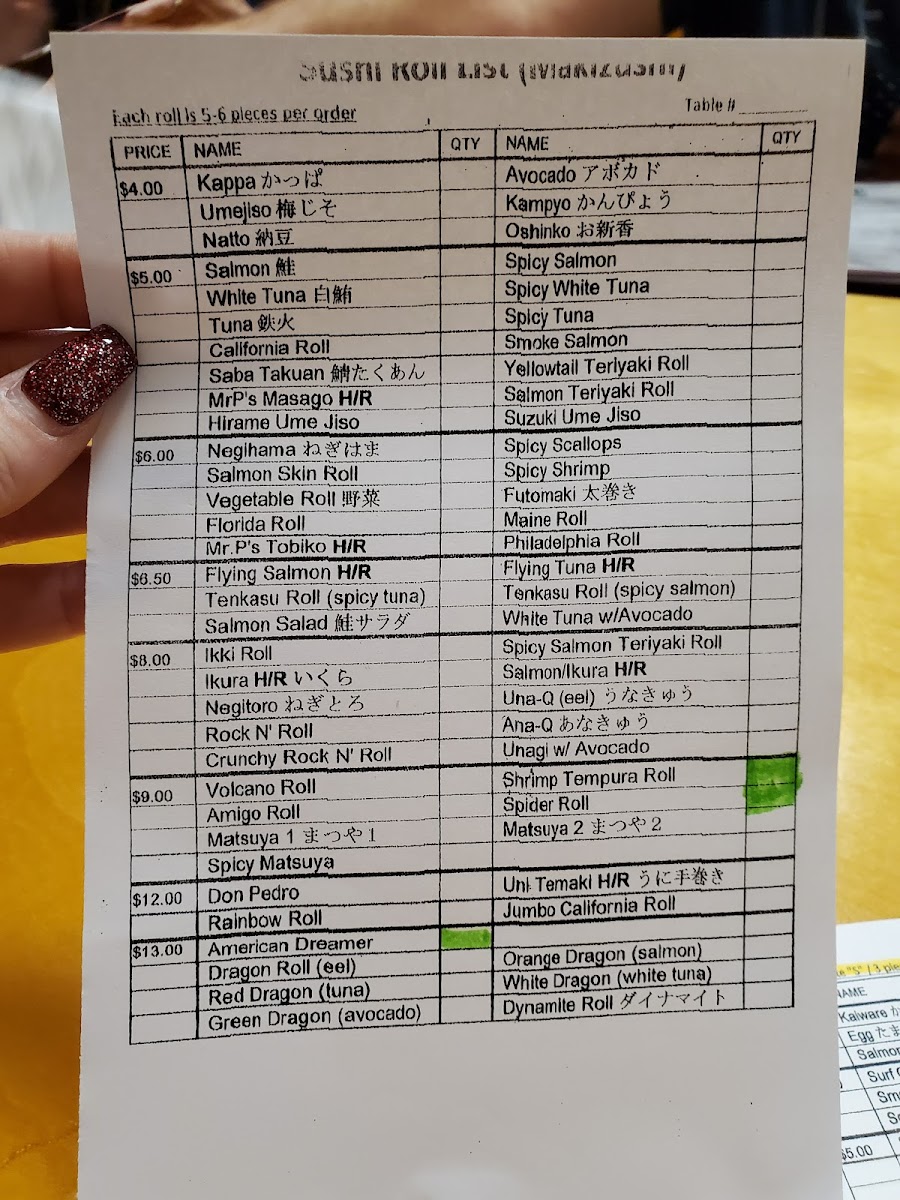 Sushi Roll List (Makizushi)
Each roll is 5-6 pieces per order
Table #
PRICE NAME QTY NAME QTY
$4.00 Kappa かっぱ Avocado アボカド
Umejiso 梅じそ Kampyo かんぴょう
Natto 納豆 Oshinko お新香
$5.00 Salmon 鮭 Spicy Salmon
White Tuna 白鮪 Spicy White Tuna
Tuna 鉄火 Spicy Tuna
California Roll Smoke Salmon
Saba Takuan 鯖たくあん Yellowtail Teriyaki Roll
MrP's Masago H/R Salmon Teriyaki Roll
Hirame Ume Jiso Suzuki Ume Jiso
$6.00 Negihama ねぎはま Spicy Scallops
Salmon Skin Roll Spicy Shrimp
Vegetable Roll 野菜 Futomaki 太巻き
Florida Roll Maine Roll
Mr.P's Tobiko H/R Philadelphia Roll
$6.50 Flying Salmon H/R Flying Tuna H/R
Tenkasu Roll (spicy tuna) Tenkasu Roll (spicy salmon)
Salmon Salad 鮭サラダ White Tuna w/Avocado
$8.00 Ikki Roll Spicy Salmon Teriyaki Roll
Ikura H/R いくら Salmon/Ikura H/R
Negitoro ねぎとろ Una-Q (eel) うなきゅう
Rock N' Roll Ana-Q あなきゅう
Crunchy Rock N' Roll Unagi w/ Avocado
$9.00 Volcano Roll Shrimp Tempura Roll
Amigo Roll Spider Roll
Matsuya 1 まつや1 Matsuya 2 まつや2
Spicy Matsuya
$12.00 Don Pedro Uni Temaki H/R うに手巻き
Rainbow Roll Jumbo California Roll
$13.00 American Dreamer
Dragon Roll (eel) Orange Dragon (salmon)
Red Dragon (tuna) White Dragon (white tuna)
Green Dragon (avocado) Dynamite Roll ダイナマイト
NAME
Kaiware か
Egg たま
Salmon
Surf
$5.00